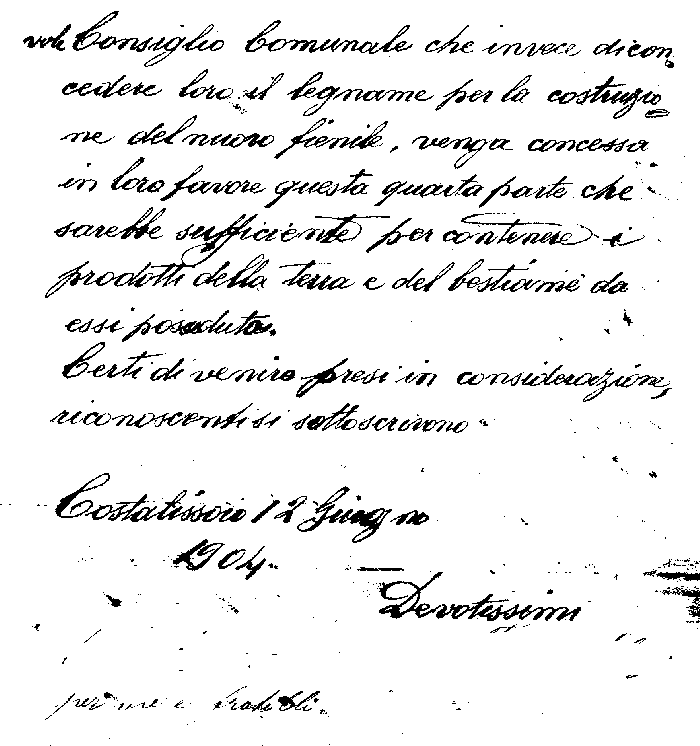 vole Consiglio Comunale che invece di con
cedere loro il legname per la costruzio
ne del nuovo fienile, venga concessa
in loro favore questa quarta parte che
sarebbe sufficiente per contenere i
prodotti della terra e del bestiame da
essi posseduto.
Certi di venire presi in considerazione,
riconoscenti si sottoscrivono
Costalissoio 12 Giugno
1904.
Devotissimi
per me e fratelli.